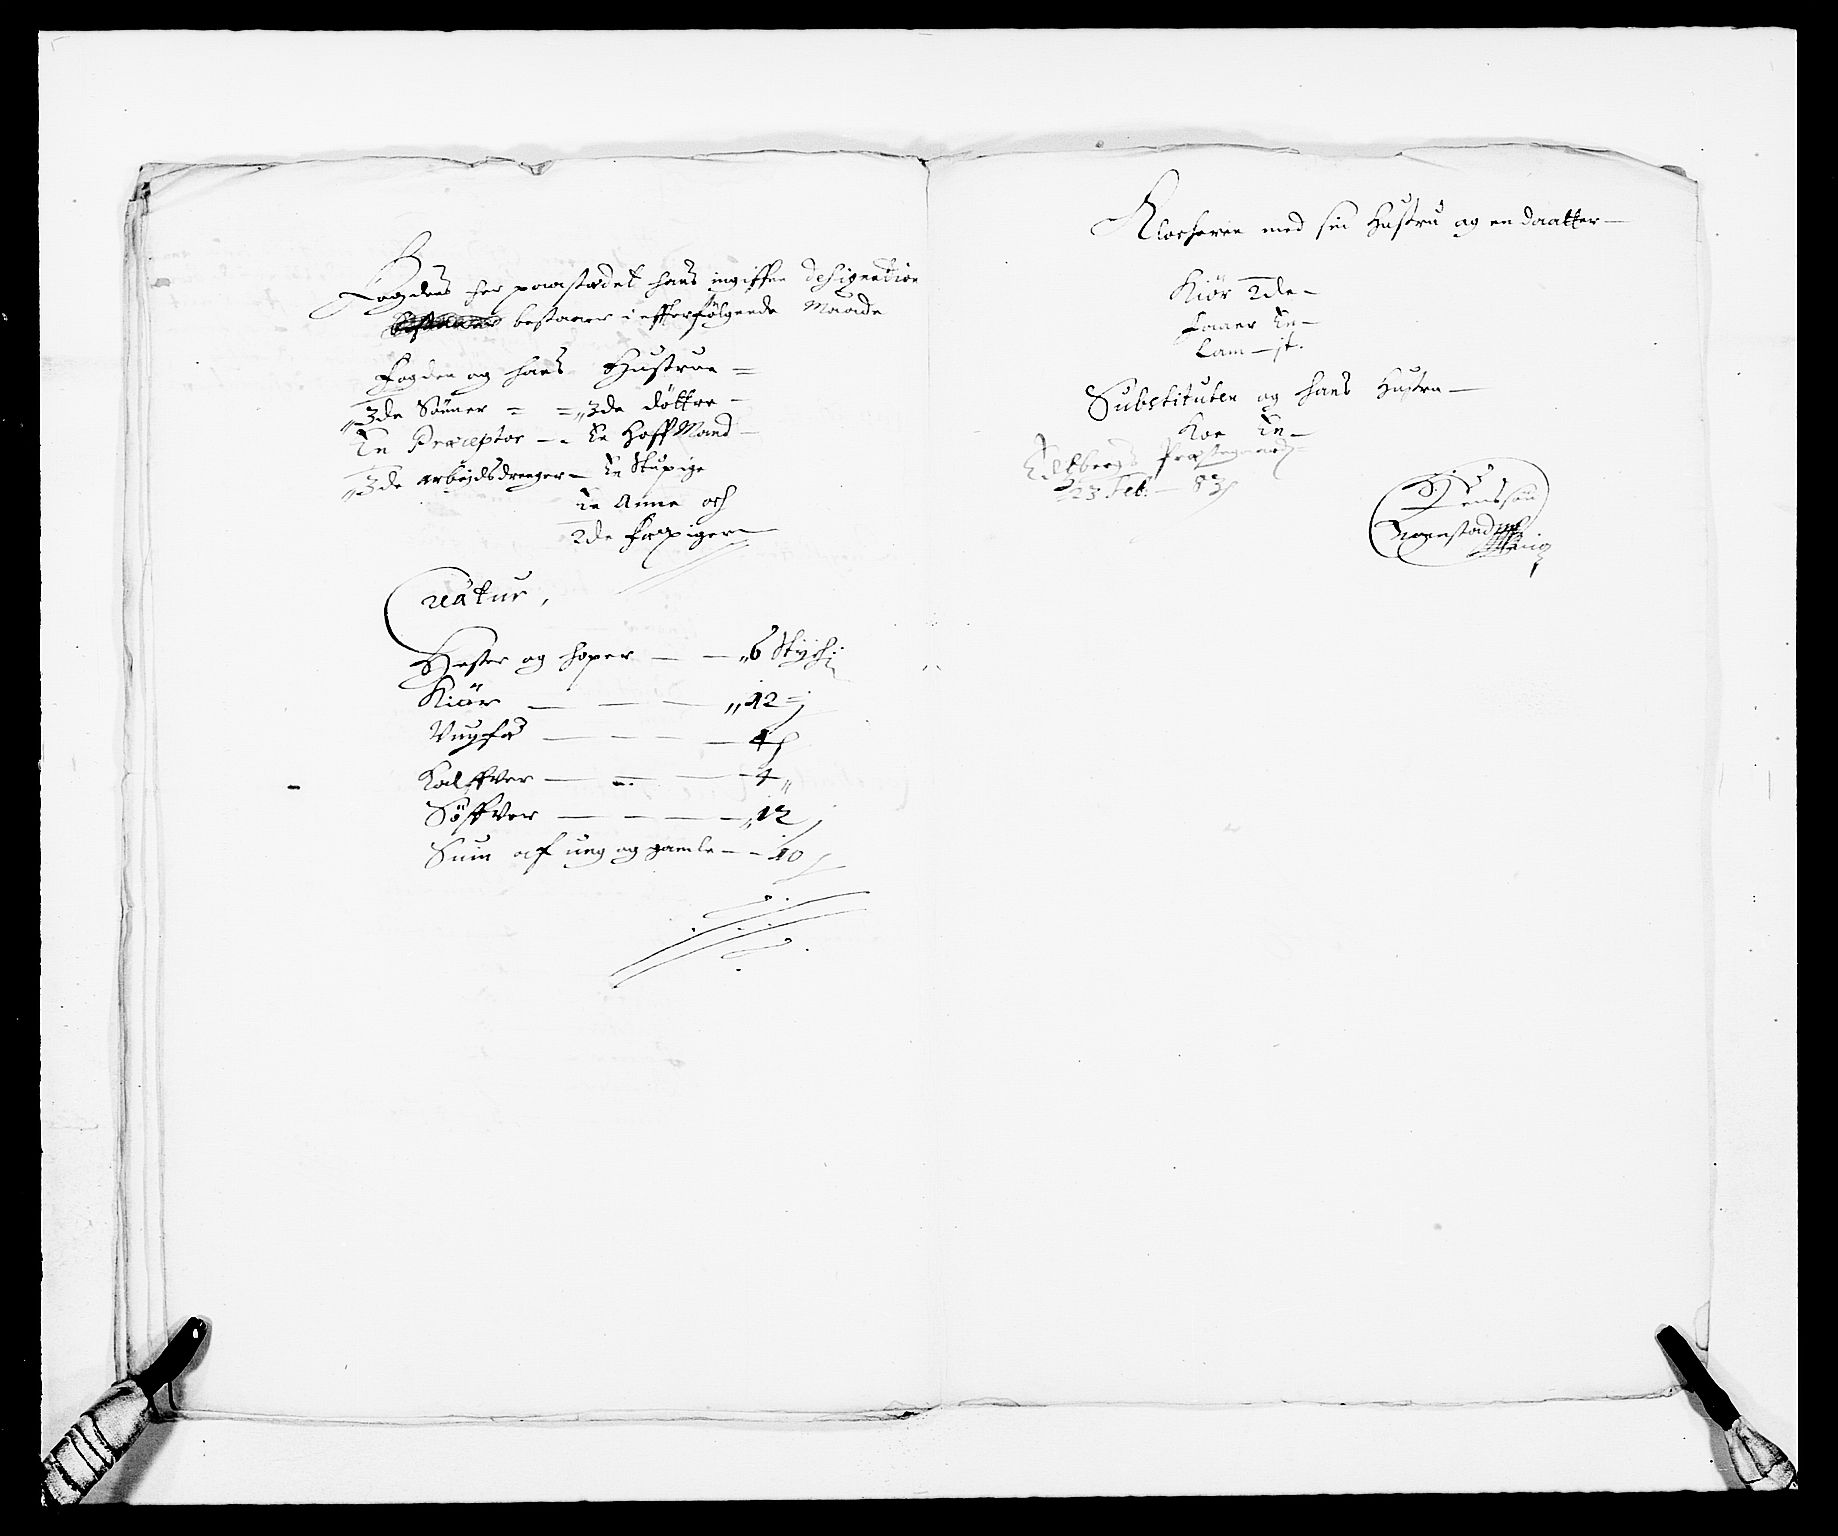 Fogdens her paastædet hans ingiffne designation
bestaaer i efferfølgende Maade
Fogden og hans Hustrue =
„3de Sönner = = „3de döttre –
En Præceptor – . En Hoff Mand –
„3de arbejdsdrenger – En Stupige
En Amme och
2de Fæpiger
Creatur,
Hester og hoper – – „6 Stycki
Kiör – – – „12 =
Vngfæ – – – – 4
Kalffver – – – – 4 „
Söffver – – – – „12
Suin af ung og gamle – – 10
Klocheren med sin Hustru og en daatter –
Kiör 2de –
En –
Lam – jt.
Substituten og hans Hustru –
Koe En –
Præstegaard
23 Feb. – 83
Jensson